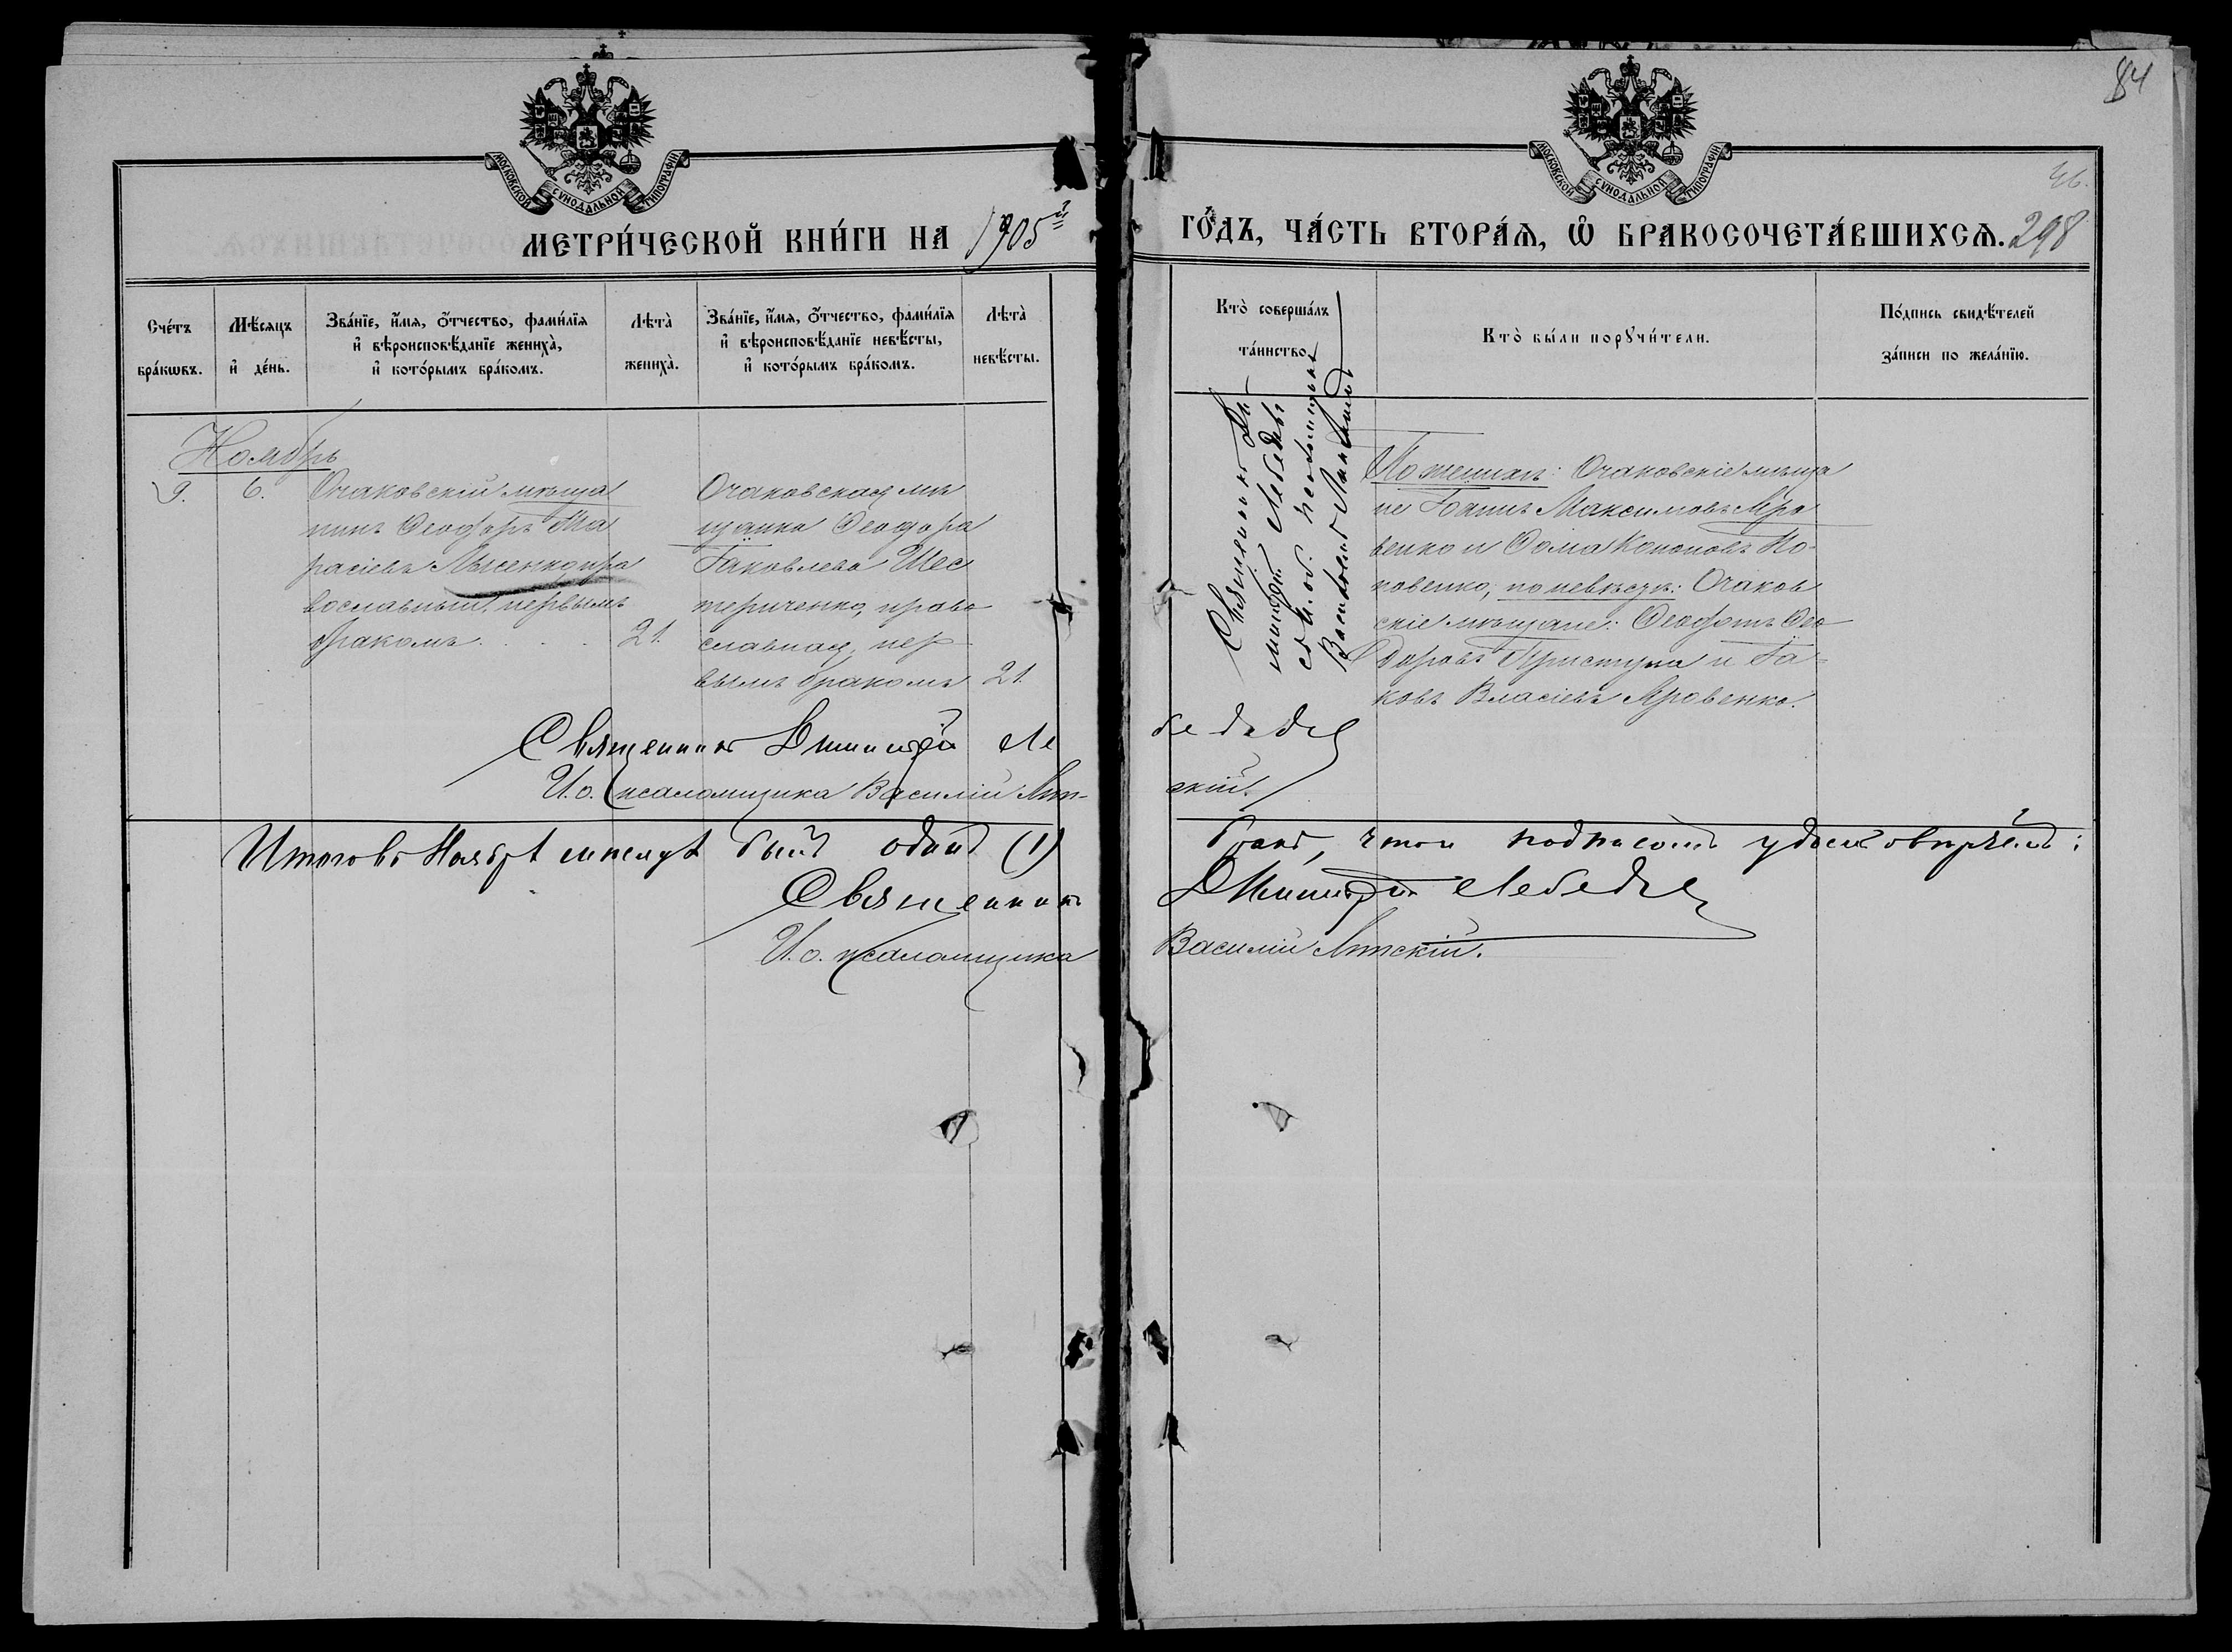 84
МОСКОВСКОЙ СѴНОДАЛЬНОЙ ТИПОГРАФІИ
МОСКОВСКОЙ СѴНОДАЛЬНОЙ ТИПОГРАФІИ
46.
МЕТРИ́ЧЕСКОЙ КНИ́ГИ НА 1905й
ГО́ДЪ, ЧА́СТЬ ВТОРА́Ѧ, Ѡ҆ БРАКОСОЧЕТА́ВШИХСѦ. 298
Сче́тъ
бра́кѡвъ.
Мѣ́сяцъ
и҆ де́нь.
Зва́нїе, и҆́мѧ, ѻ҆́тчество, фами́лїѧ
и҆ вѣроисповѣ́данїе жениха̀,
и҆ кото́рымъ бра́комъ.
Лѣта̀
жениха̀.
Зва́нїе, и҆́мѧ, ѻ҆́тчество, фами́лїѧ
и҆ вѣроисповѣ́данїе невѣ́сты,
и҆ кото́рымъ бра́комъ.
Лѣта̀
невѣ́сты.
Кто̀ соверша́лъ
та́инство.
Кто̀ бы́ли порꙋчи́тели.
По́дпись свидѣ́телей
за́писи по жела́нїю.
Ноябрь
9.
6.
Очаковскій мѣща
нинъ Ѳеодоръ Та
расіевъ Лысенко, пра
вославный, первымъ
бракомъ. . . .
21.
Очаковская мѣ
щанка Ѳеодора
Іаковлева Шес
териченко, право
славная, пер
вымъ бракомъ
21.
Священникъ Ди
митрій Лебедевъ
съ и. об. псаломщика
Василіемъ
По женихѣ: Очаковскіе мѣща
не Іоаннъ Максимовъ Яро
венко и Ѳома Кононовъ Ко-
новенко; по невѣстѣ: Очаков
скіе мѣщане: Ѳеофанъ Ѳео
доровъ и Іа-
ковъ Власіевъ Яровенко.
Священникъ Димитрій Ле
бедевъ
И. о. псаломщика Василій Лит-
скій.
Итого въ Ноябрѣ мѣсяцѣ былъ одинъ (1)
бракъ, что и подписомъ удостовѣряемъ:
Священникъ
Димитрій Лебедевъ
И. о. псаломщика
Василій Литскій.